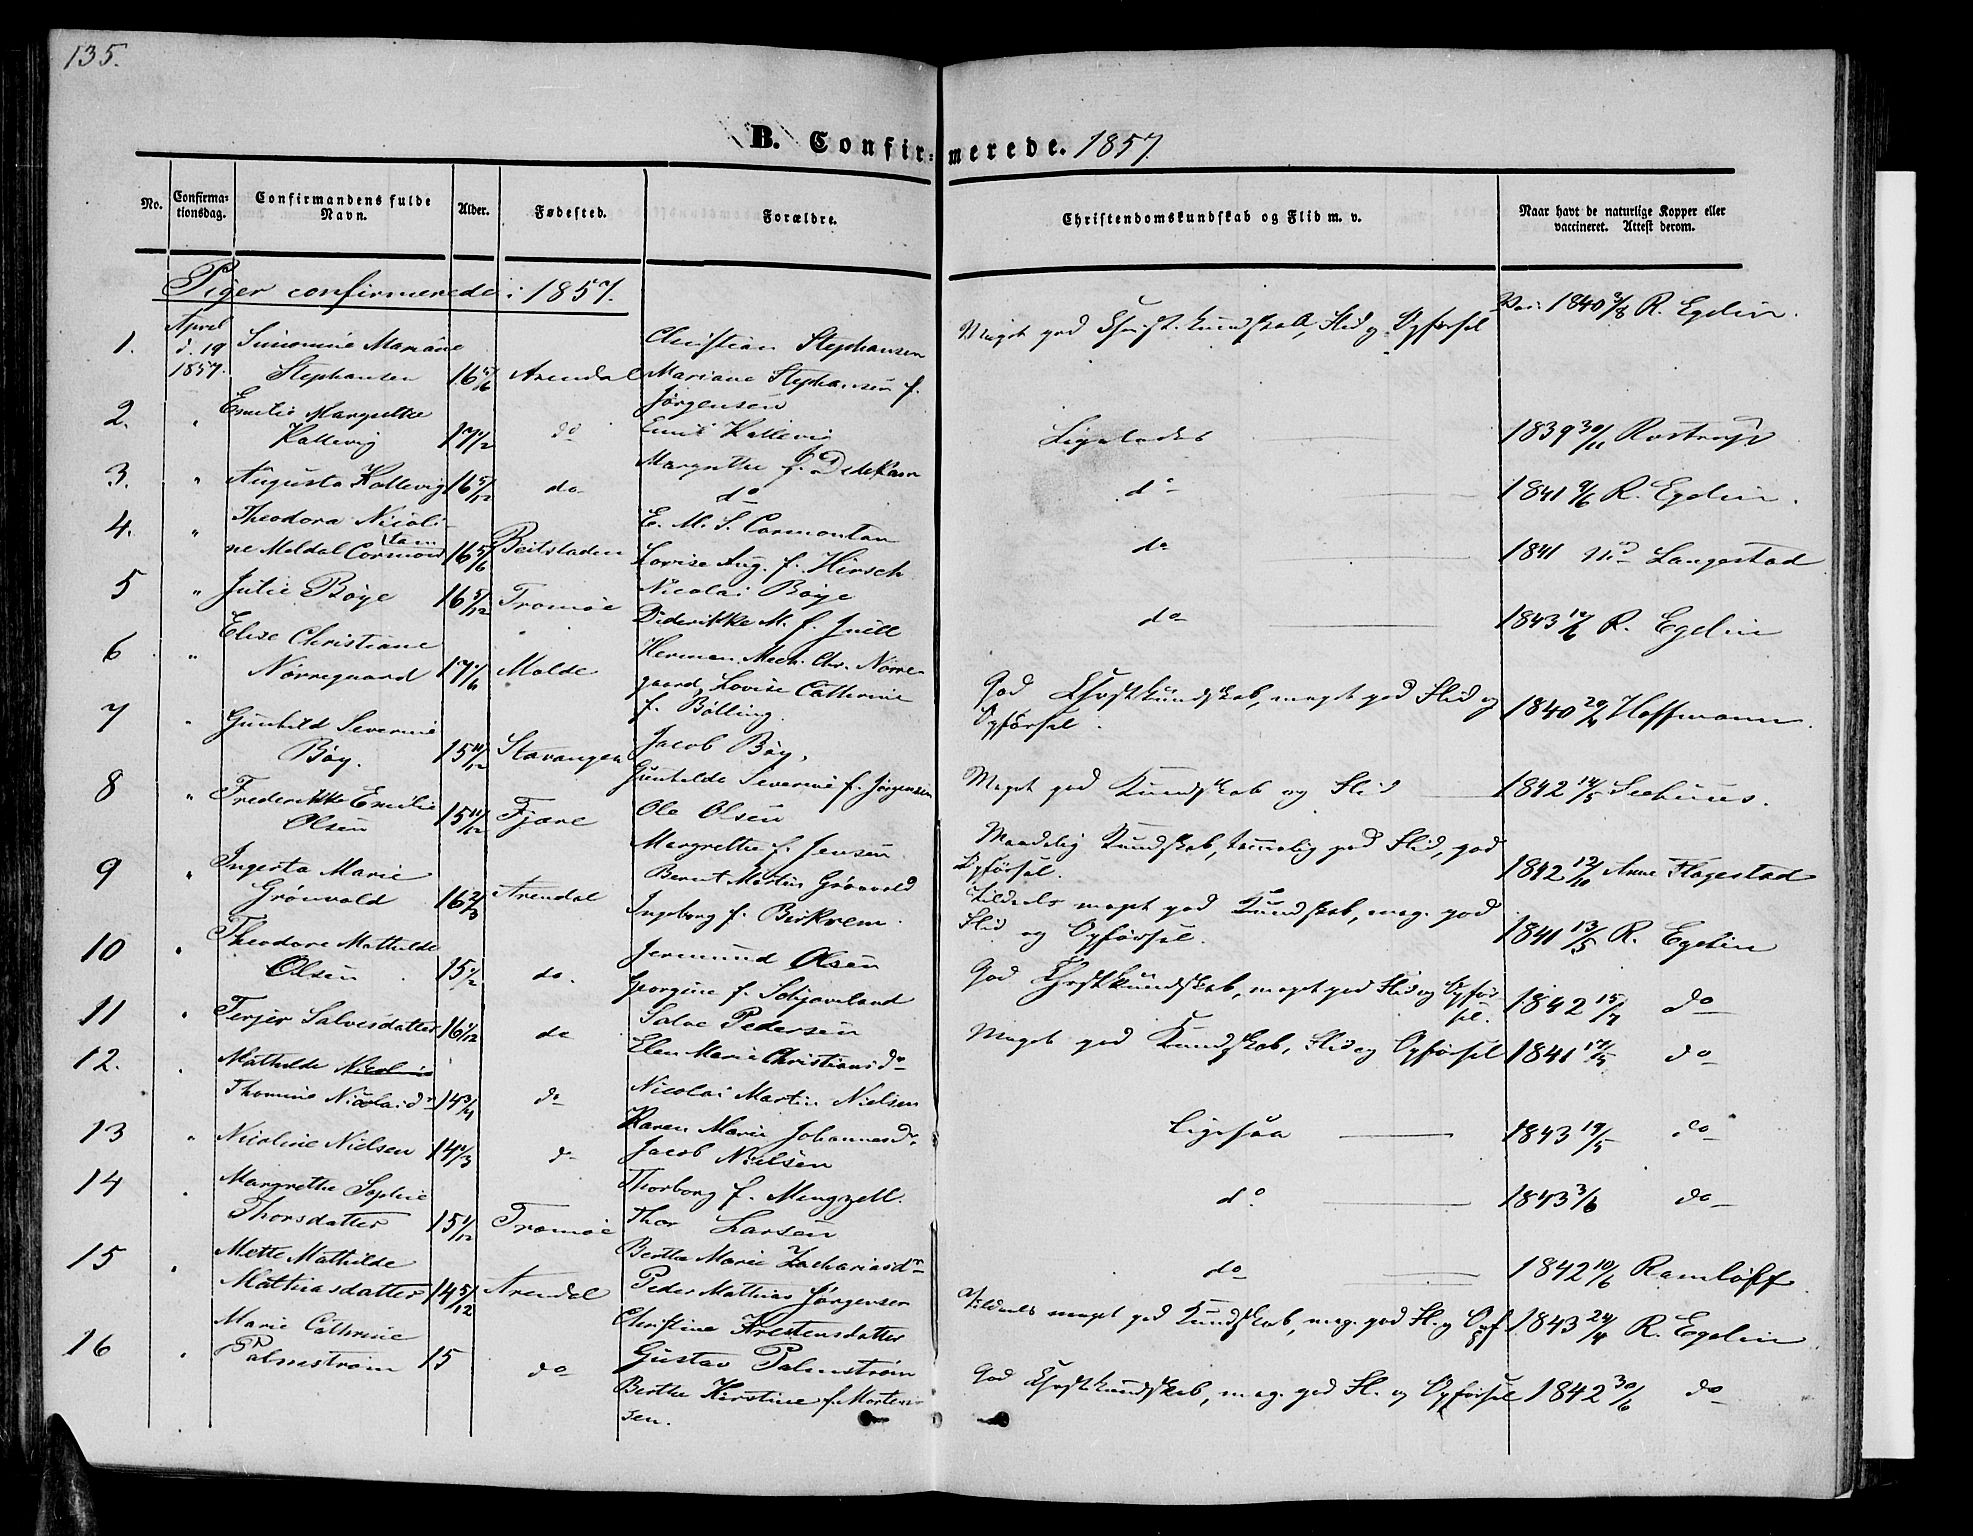 135.
B. Confirmerede. 1857.
No. Confirmationsdag. Confirmandens fulde Navn. Alder. Fødested. Forældre. Christendomskundskab og Flid m. v. Naar havt de naturlige Kopper eller vaccineret. Attest derom.
Piger confirmerede i 1857.
1. April d. 19 1857. Simonine Mariane Stephansen 16 5/6 Arendal Christian Stephansen Mariane Stephansen f. Jørgensen Meget god Christ. kundskab, Flid og Opførsel Vac. 1840 3/8 R. Egelin.
2. " Emilie Margrethe Kallevig 17 1/2 do Emil Kallevig Margrethe f. Dedekam Ligeledes 1839 30/11
3. " Augusta Kallevig 16 5/12 do do do 1841 9/6 R. Egelin.
4. " Theodora Nicoline Meldal Cormontan 16 5/6 Beitstaden E. M. S. Cormontan Lovise Aug. f. Hirsch do 1841 Langestad
5 " Julie Bøye 16 5/12 Tromøe Nicolai Bøye Diderikke M. f. Juell do 1843 R. Egelin
6 " Elise Christiane Nørregaard 17 1/6 Molde Herman Mech. Chr. Nørregaard, Lovise Cathrine f. Bølling. God Chrstkundskab, meget god Flid og Opførsel. 1840 Hoffmann.
7 " Gunhild Severine Bøy. 15 11/12 Stavanger Jacob Bøy, Gunhilde Severine f. Jørgensen Meget god Kundskab og Flid 1842 14/5 Seehuus.
8 " Frederikke Emilie Olsen 15 11/12 Fjære Ole Olsen Margrethe f. Jensen Maadelig Kundskab, temmelig god Flid, god Opførsel. 1842 12/10 Anne Flagestad
9 " Ingerta Marie Grønvold 16 2/3 Arendal Bernt Martin Grønvold Ingeborg f. Birkrem. Tildeels meget god Kundskab, meg. god Flid og Opførsel. 1841 13/5 R. Egelin
10 " Theodore Mathilde Olsen 15 1/2 do. Jermund Olsen Georgine f. God Chrstkundskab, meget god Flid og Opførsel. 1842 15/7 do
11 " Terjer Salvesdatter 16 1/12 do Salve Pedersen Elen Marie Christiansdr Meget god Kundskab, Flid og Opførsel 1841 do
12. " Mathilde Thomine Nicolaidr 14 3/4 do Nicolai Martin Nielsen Karen Marie Johannesdr. Ligesaa 1843 19/5 do
13 " Nicoline Nielsen 14 1/3 do Jacob Nielsen Thorborg f. Mengzell. do 1843 3/6 do
14 " Margrethe Sophie Thorsdatter 15 1/12 Tromøe Thor Larsen Berthe Marie Zachariasdr do 1842 10/6 Ramløff.
15 " Mette Mathilde Mathiasdatter 14 5/12 Arendal Peder Mathias Jørgensen Christine Krestensdatter Tildeels meget god Kundskab, meg. god Fl. og Opf 1843 24/4 R. Egelin
16 " Marie Cathrine Palmstrøm 15 do Gustav Palmstrøm Berthe Kirstine f. Mortensen. God Chrstkundskab, meg. god Fl. og Opførsel 1842 30/6 do